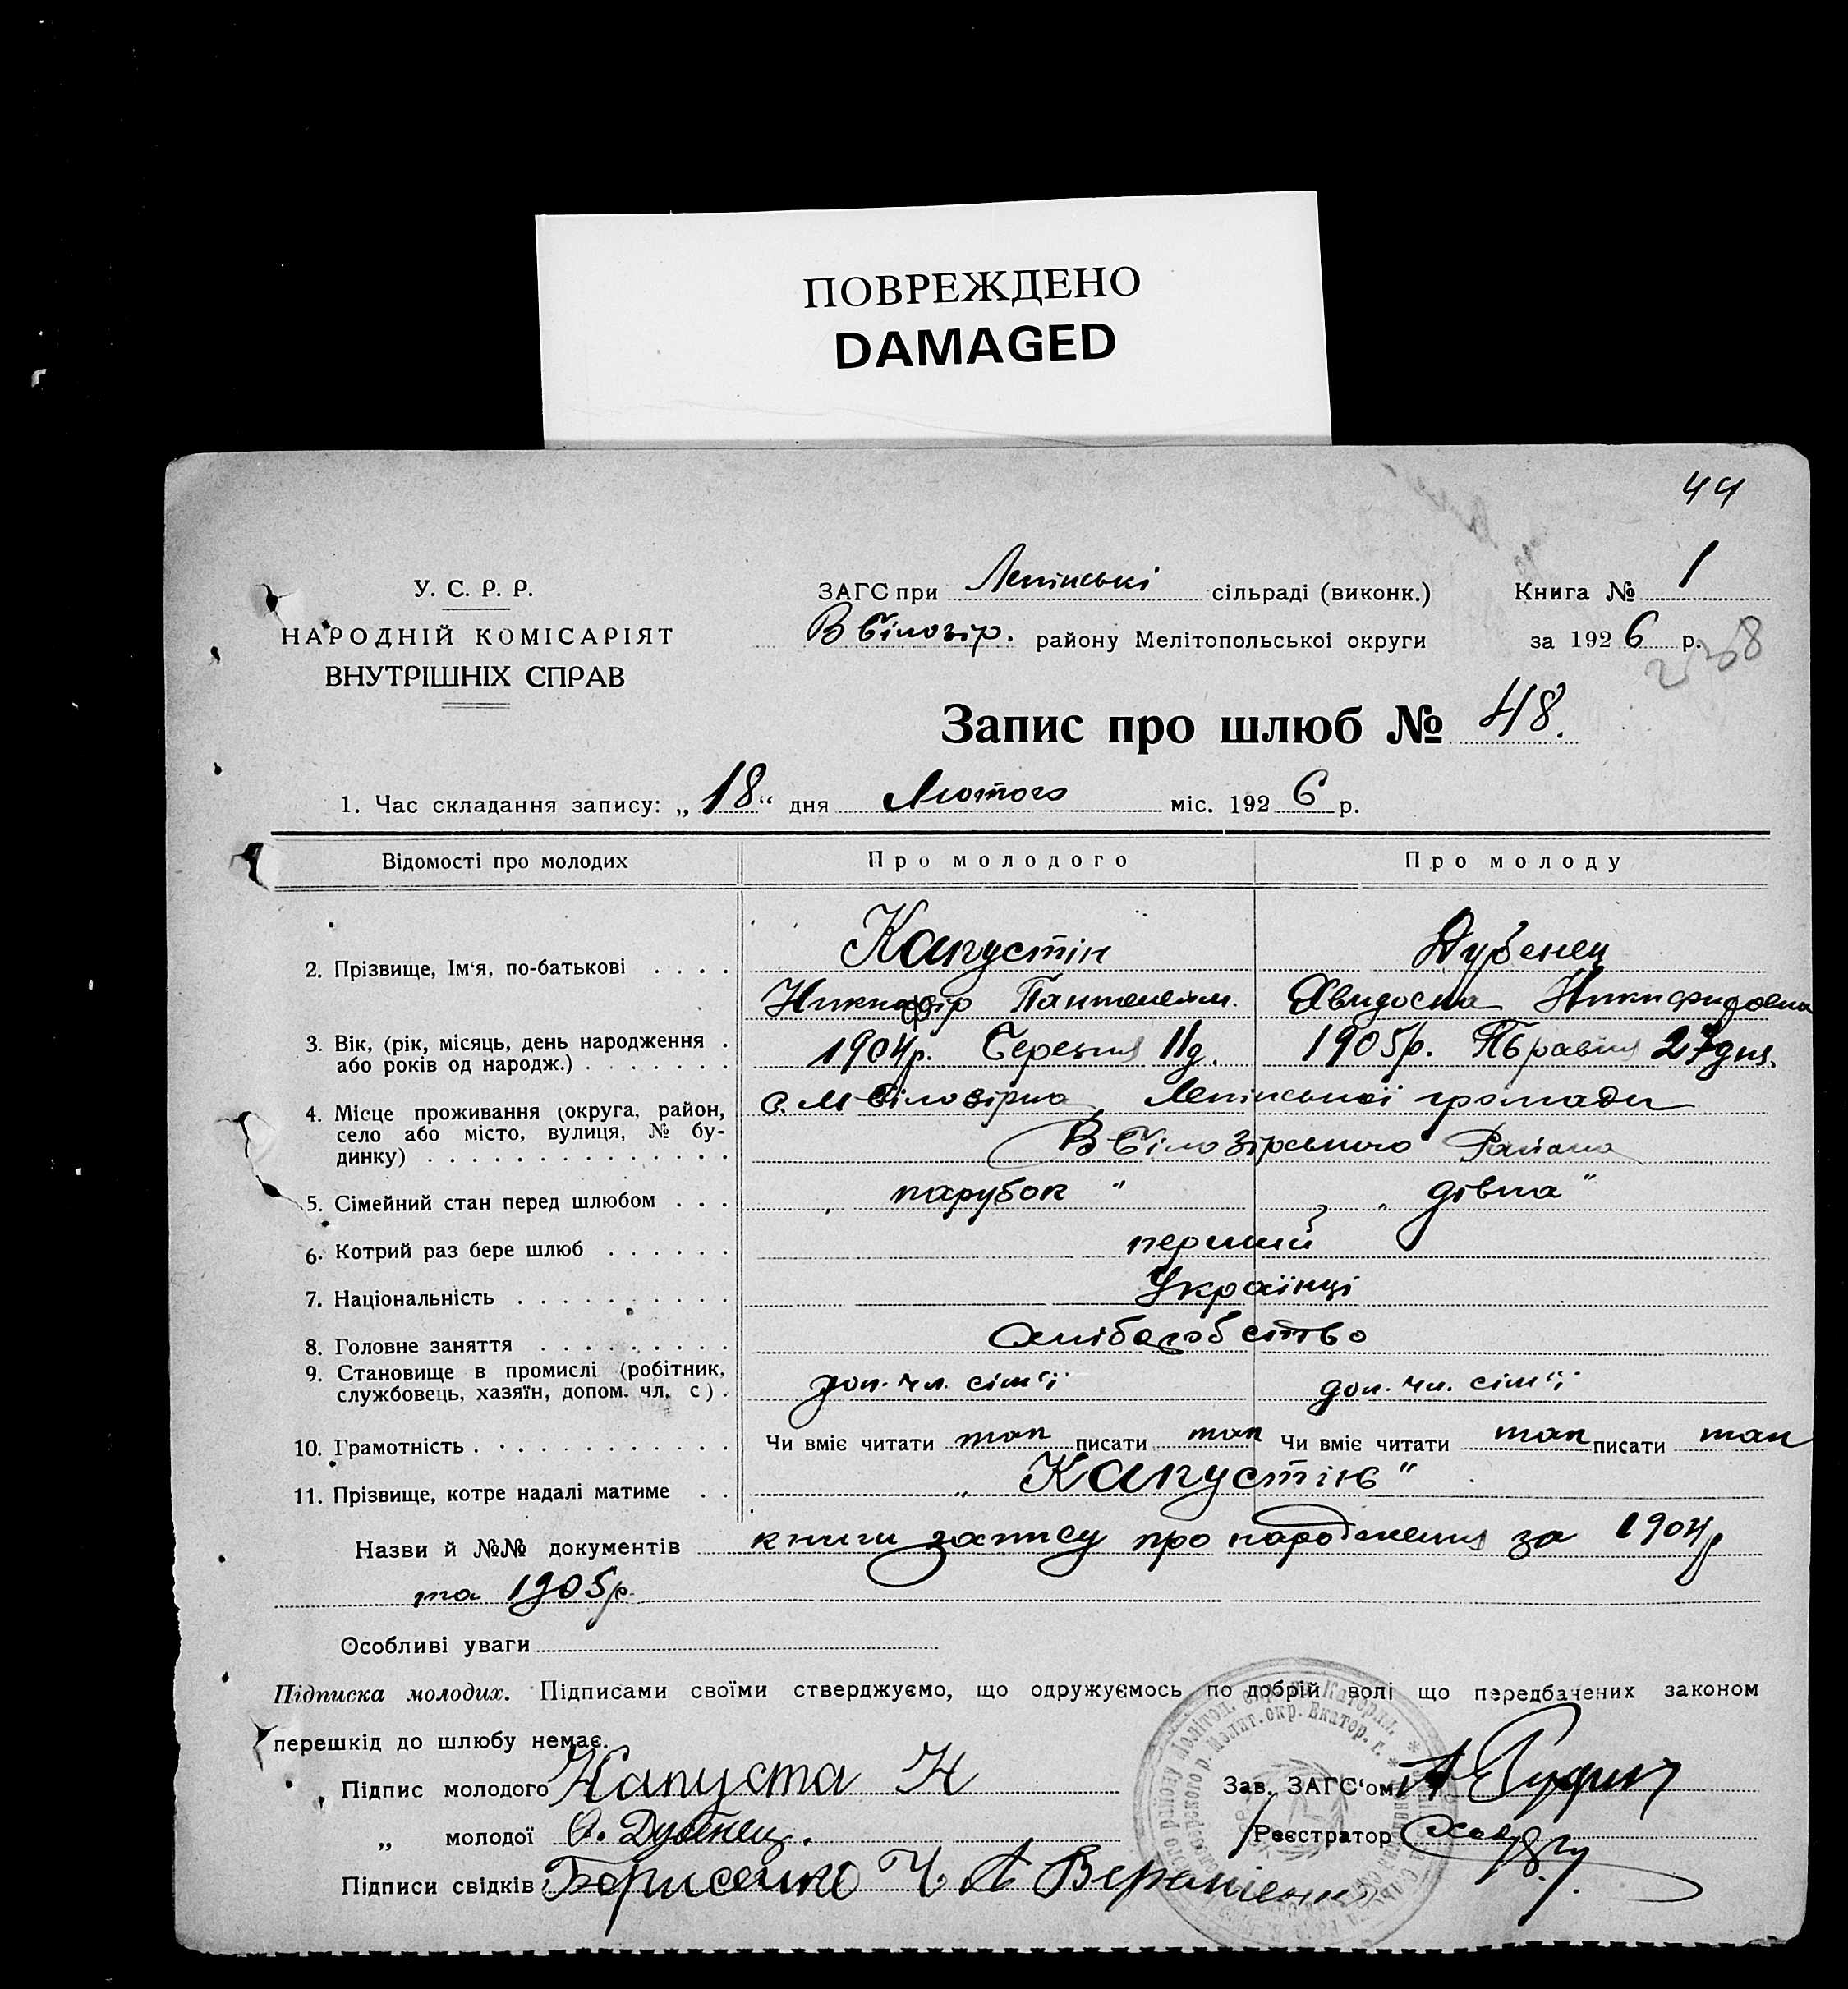 ПОВРЕЖДЕНО
DAMAGED
44
У. С. Р. Р.
НАРОДНІЙ КОМІСАРІЯТ
ВНУТРІШНІХ СПРАВ
ЗАГС при Ленінські сільраді (виконк.)
В Білозір. району Мелітопольської округи
Книга № 1
за 1926 р.
Запис про шлюб № 48.
1. Час складання запису: „18“ дня Лютого міс. 1926 р.
Відомості про молодих Про молодого Про молоду
2. Прізвище, Ім'я, по-батькові . . . . Капустін Дубенец
Никифір Пантелейм. Явидоська Никифоровна
3. Вік, (рік, місяць, день народження . 1904р. Березня 11д. 1905р. Травня 27 дня.
або років од народж.) . . . . . . .
4. Місце проживання (округа, район, с. М Білозірка Ленінської громади
село або місто, вулиця, № бу-
динку) . . . . . . . . . . . . . . В Білозірського Району
5. Сімейний стан перед шлюбом . . . „ парубок " „ дівка"
6. Котрий раз бере шлюб . . . . . . перший
7. Національність . . . . . . . . . . Українці
8. Головне заняття . . . . . . . . . хліборобство
9. Становище в промислі (робітник, доп. чл. сім'ї доп. чл. сім'ї
службовець, хазяїн, допом. чл. с) .
10. Грамотність . . . . . . . . . . . . Чи вміє читати так писати так Чи вміє читати так писати так
11. Прізвище, котре надалі матиме . . „ Капустін"
Назви й №№ документів книги запису про народження за 1904р
та 1905р.
Особливі уваги
Підписка молодих. Підписами своїми стверджуємо, що одружуємось по добрій волі що передбачених законом
перешкід до шлюбу немає.
Підпис молодого Капуста Н
Зав. ЗАГС'ом
„ молодої Я. Дубенец.
Реєстратор
Підписи свідків Борисенко